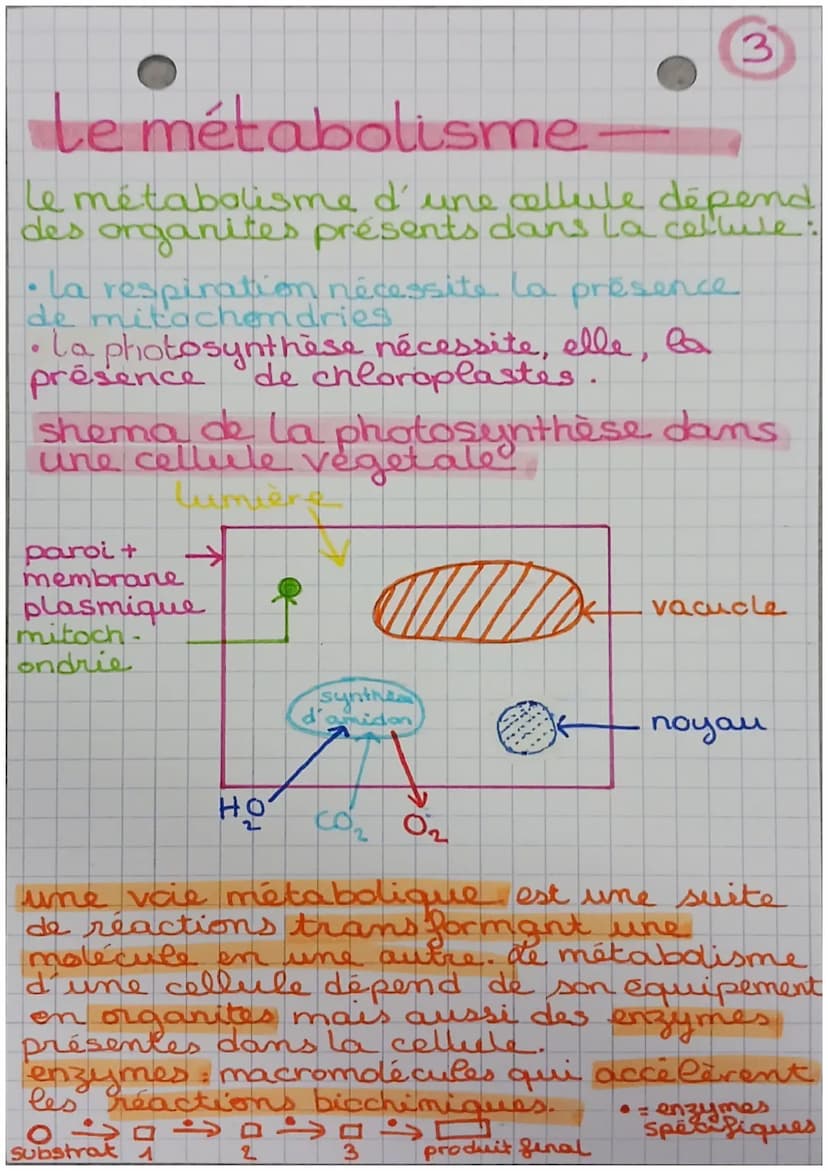 3
Le métabolisme
Le métabolisme d'une cellule dépend
des organites présents dans la cellule :
• La respiration nécessite la présence
de mitochondries
• La photosynthèse nécessite, elle, la
présence de chloroplastes.
shema de la photosynthèse dans
une cellule végetale
lumière
paroi +
membrane
plasmique
mitoch-
ondrie
vacuole
synthèse
d'amidon
noyau
H2O
CO2
O2
une voie métabolique est une suite
de réactions transformant une
molécule en une autre. Le métabolisme
d'une cellule dépend de son équipement
en organites mais aussi des enzymes
présentes dans la cellule.
enzymes : macromolécules qui accélèrent
les réactions biochimiques.
• = enzymes
spécifiques
substrat 1 2 3 produit final